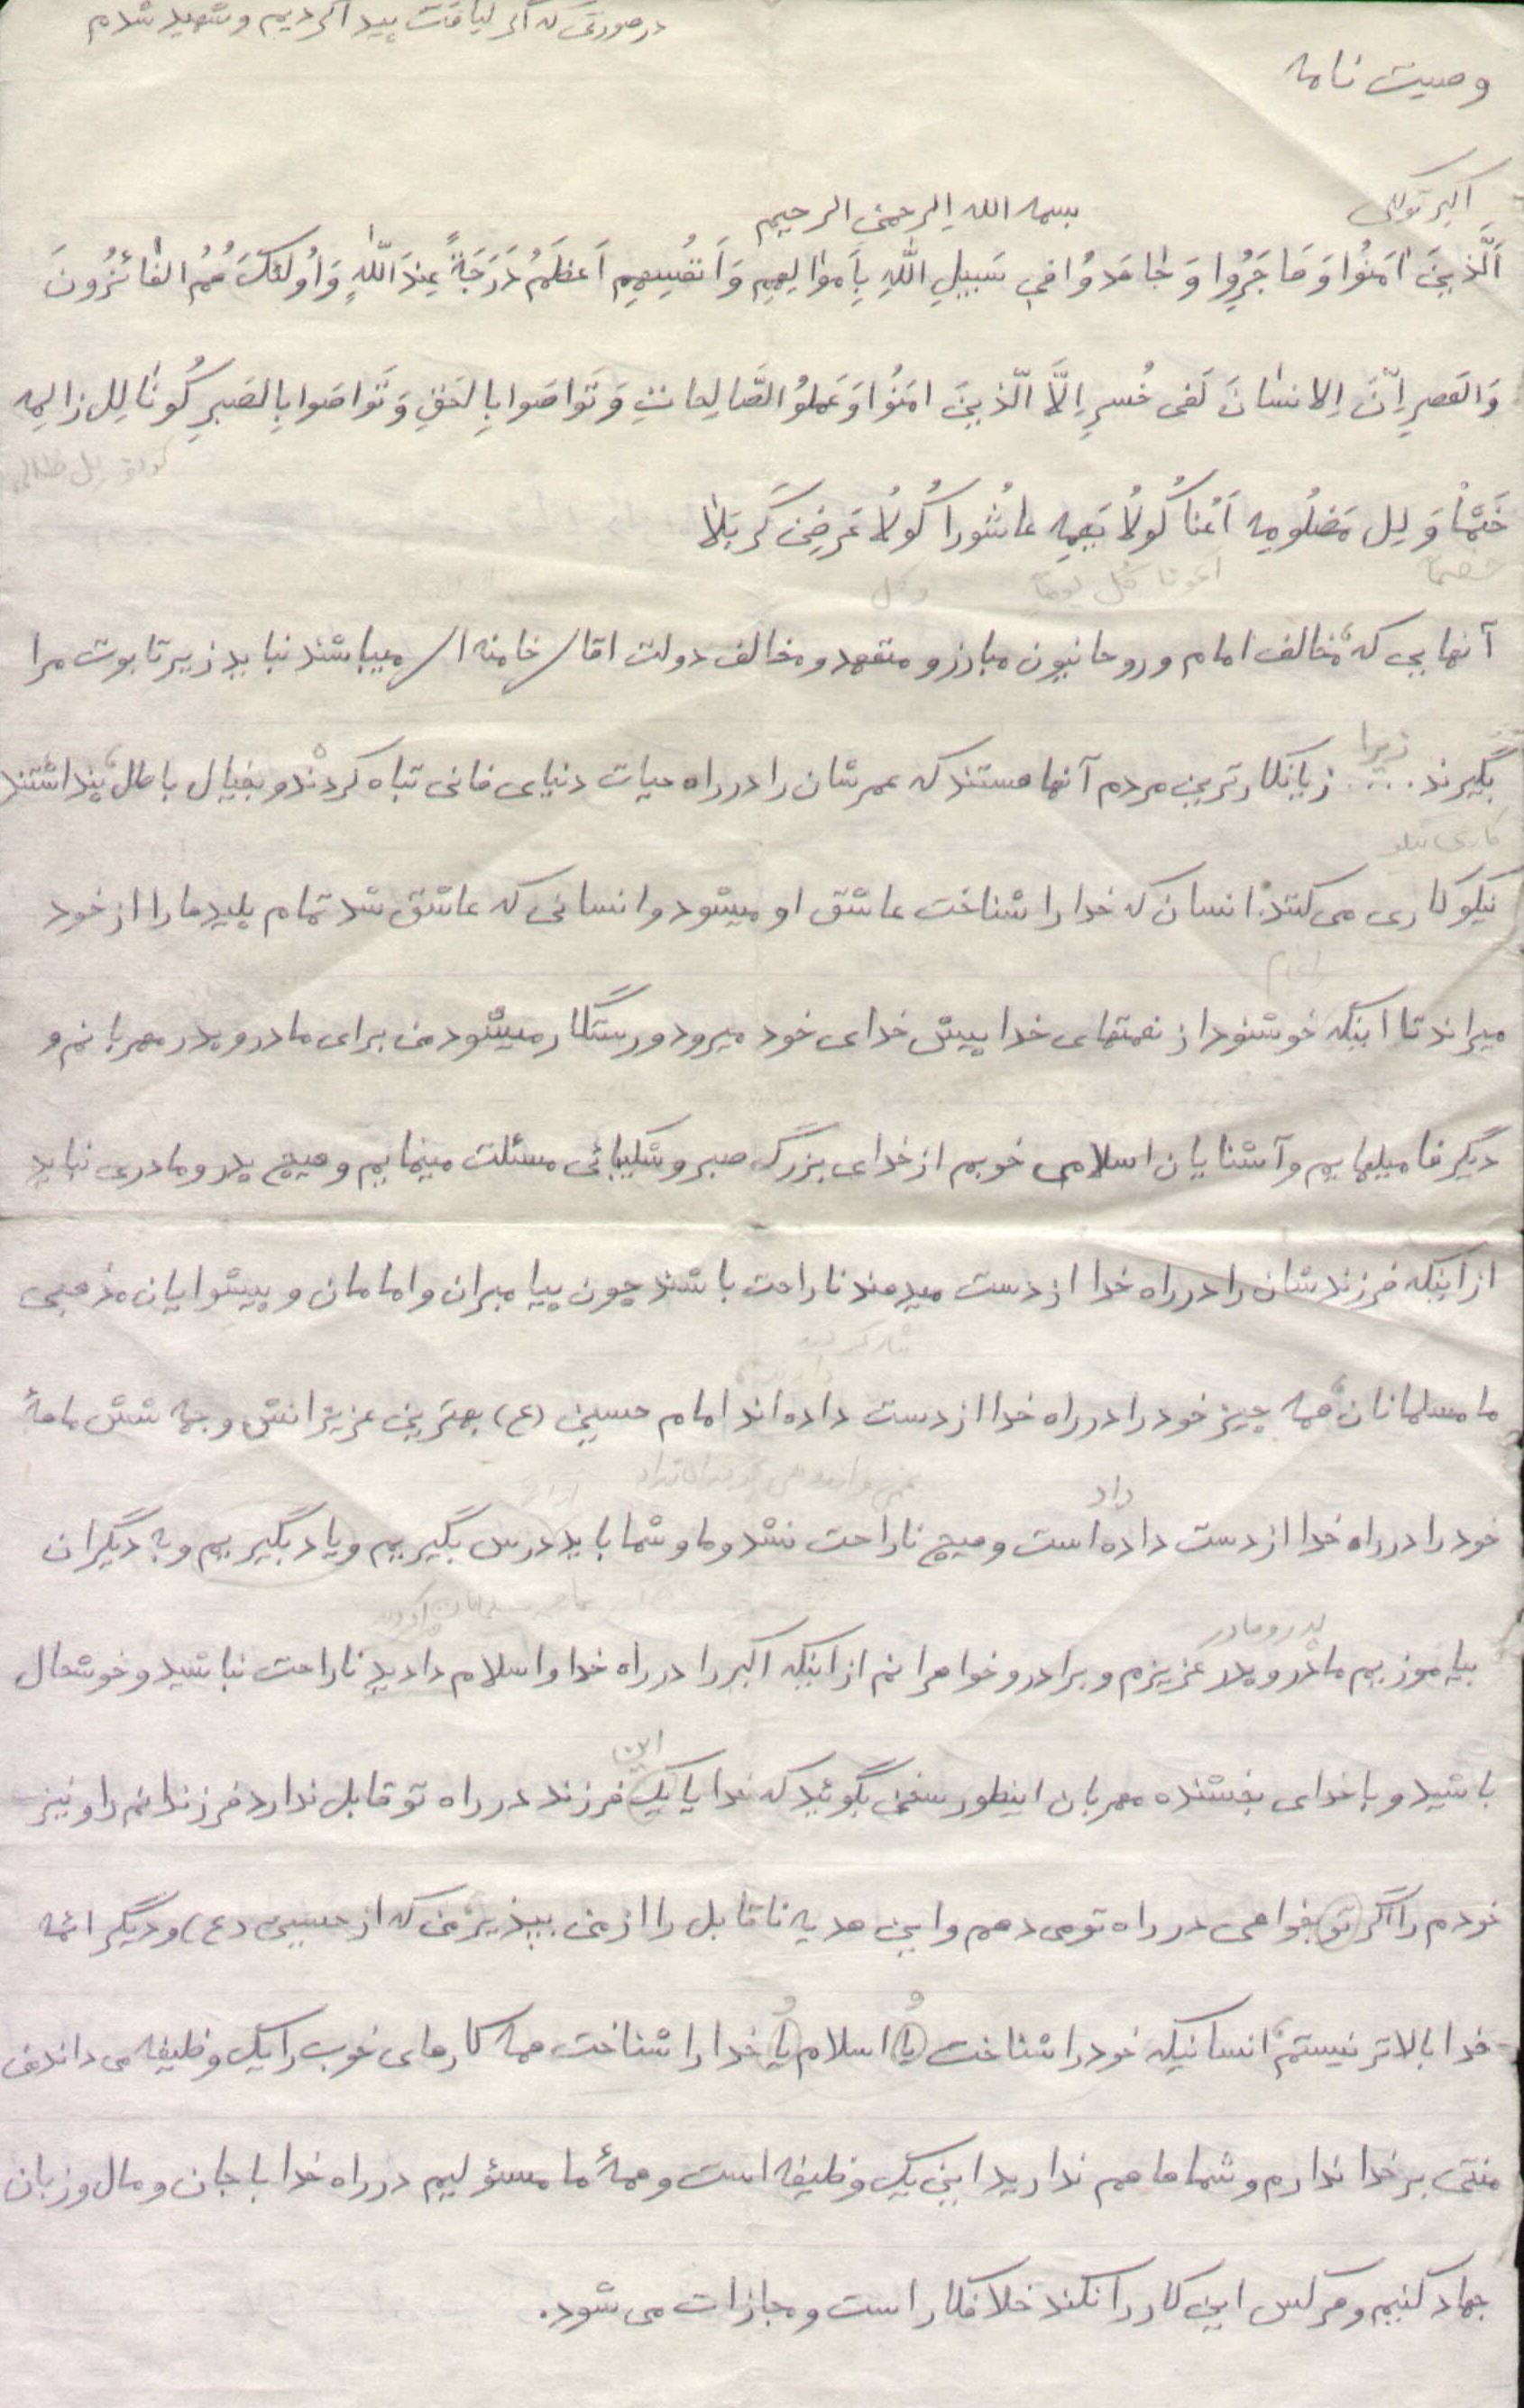 در صورتی که اگر لیاقت پیدا کردیم و شهید شدم
وصیت نامه
اکبر توکلی
بسمه الله الرحمن الرحیم
اَلَّذینَ امَنُوا وَ هاجَرُوا وَ جاهَدُوا فی سَبیلِ اللهِ بِاَموالِهِم وَ اَنفُسِهِم اَعظَمُ دَرَجَةً عِندَ اللّهِ وَ اُولئکَ هُمُ الفائزُونَ
وَالعَصرِ اِنَّ الانسانَ لَفی خُسرٍ اِلاَّ الّذینَ امَنُوا وَ عَملُوا الصَّالِحاتِ وَ تَواصَوا بِالحَقِ وَ تَواصَوا بِالصَبرِ کُونا لِل زالِمه
کونو لل ظالم
خَتمًا وَ لِل مَضلُومِه اَعُنا کُولُا یَعمِه عاشُورا کُولُا عَرضِن کَربَلا
خصما اعونا کل یوما وکل
آنهایی که مخالف امام و روحانیون مبارز و متعهد و مخالف دولت اقای خامنه ای میباشند نباید زیر تابوت مرا
زیرا
بگیرند .... زیانکارترین مردم آنها هستند که عمرشان را در راه حیات دنیای فانی تباه کردند و بخیال باطل پنداشتند
کاری نیکو
نیکوکاری می کنند. انسان که خدا را شناخت عاشق او میشود و انسانی که عاشق شد تمام پلیدها را از خود
میراند تا اینکه خوشنود از نعمتهای خدا پیش خدای خود میرود و رستگار میشود من برای مادر و پدر مهربانم و
دیگر فامیلهایم و آشنایان اسلامی خوبم از خدای بزرگ صبر و شکیبائی مسئلت مینمایم و هیچ پدر و مادری نباید
از اینکه فرزندشان را در راه خدا از دست میدهند ناراحت باشند چون پیامبران و امامان و پیشوایان مذهبی
ما مسلمانان همه چیز خود را در راه خدا از دست داده اند امام حسین (ع) بهترین عزیزانش و بچه شش ماهۀ
داد
خود را در راه خدا از دست داده است و هیچ ناراحت نشد و ما و شما باید درس بگیریم و یاد بگیریم و به دیگران
پدر و مادر
بیاموزیم مادر و پدر عزیزم و برادر و خواهرانم از اینکه اکبر را در راه خدا و اسلام دادید ناراحت نباشید و خوشحال
این
باشید و با خدای بخشنده مهربان اینطور سخن بگوئید که خدایا یک فرزند در راه تو قابل ندارد فرزندانم را و نیز
خودم را اگر تو بخواهی در راه تو می دهم و این هدیه ناقابل را از من بپذیر من که از حسین (ع) و دیگر ائمه
خدا بالاتر نیستم انسانیکه خود را شناخت یا اسلام یا خدا را شناخت همه کارهای خوب را یک وظیفه می داند من
و و
منتی بر خدا ندارم و شماها هم ندارید این یک وظیفه است و همۀ ما مسؤلیم در راه خدا با جان و مال و زبان
جهاد کنیم و هر کس این کار را نکند خلافکار است و مجازات می شود.